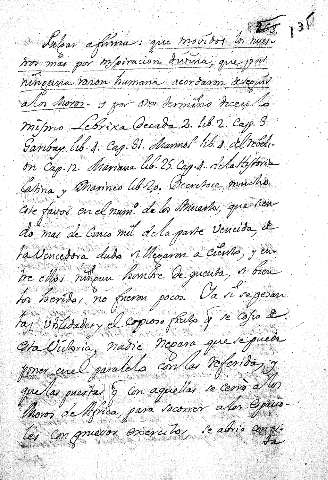 135
Pulgar afirma: que movidos los nues-
tros mas por inspiracion divina, que por
ninguna razon humana acordaron de seguir
a los Moros. y por este termino dice lo
mismo Lebrixa Decada 2. lib. 2. Cap. 3
Garibay lib. 4. Cap. 31. Marmol lib. 1. de Rebeli-
on Cap. 12. Mariana lib. 25. Cap. 4. de la Historia
latina y Marineo lib. 20.
este favor en el num.º de los Muertos, que sien-
do mas de Cinco mil de la parte Vencida, de
la Vencedora duda si llegaron a Ciento, y en-
tre ellos ningun hombre de quenta, si bien
los heridos, no fueron pocos. Ya si se pesan
las Utilidades y el Copioso fruto q se cojio de
esta Victoria, nadie negara que se pueda
poner en el paralelo con las referidas, y
que las puertas q con aquellas se cerro a los
Moros de Africa, para socorrer a los Espano-
les con gruesos exercitos se abrio